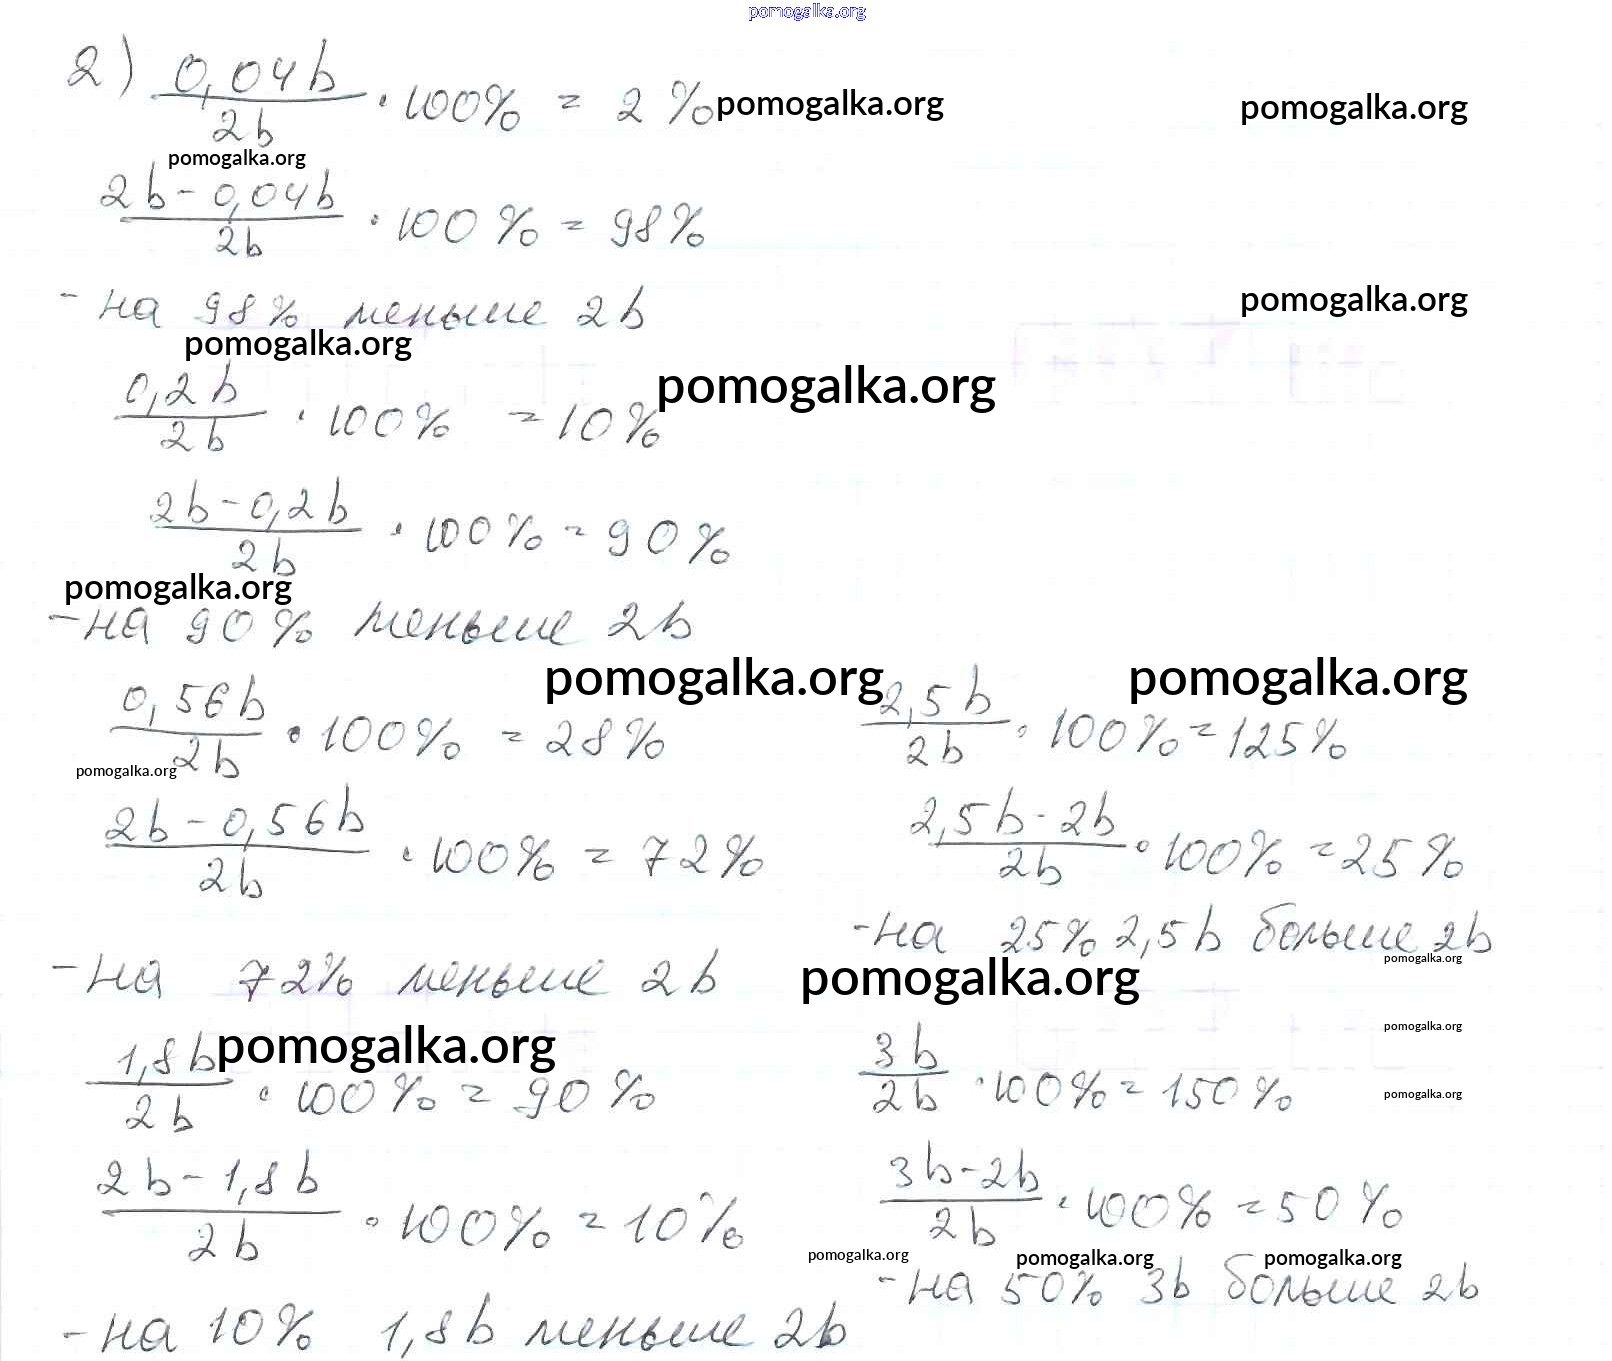 pomogalka.org
2) 0,04b / 2b · 100% = 2 % pomogalka.org pomogalka.org
pomogalka.org
2b - 0,04b / 2b · 100 % = 98%
- на 98% меньше 2b pomogalka.org
pomogalka.org
0,2b / 2b · 100% = 10% pomogalka.org
2b - 0,2b / 2b · 100% = 90%
pomogalka.org
- на 90% меньше 2b
pomogalka.org pomogalka.org
0,56b / 2b · 100% = 28%
pomogalka.org
2b - 0,56b / 2b · 100% = 72%
- на 72% меньше 2b
1,8b / 2b · 100% = 90% pomogalka.org
2b - 1,8b / 2b · 100% = 10%
- на 10% 1,8b меньше 2b
2,5b / 2b · 100% = 125%
2,5b - 2b / 2b · 100% = 25%
- на 25% 2,5b больше 2b
pomogalka.org
pomogalka.org
pomogalka.org
3b / 2b · 100% = 150%
pomogalka.org
3b - 2b / 2b · 100% = 50%
pomogalka.org pomogalka.org pomogalka.org
- на 50% 3b больше 2b